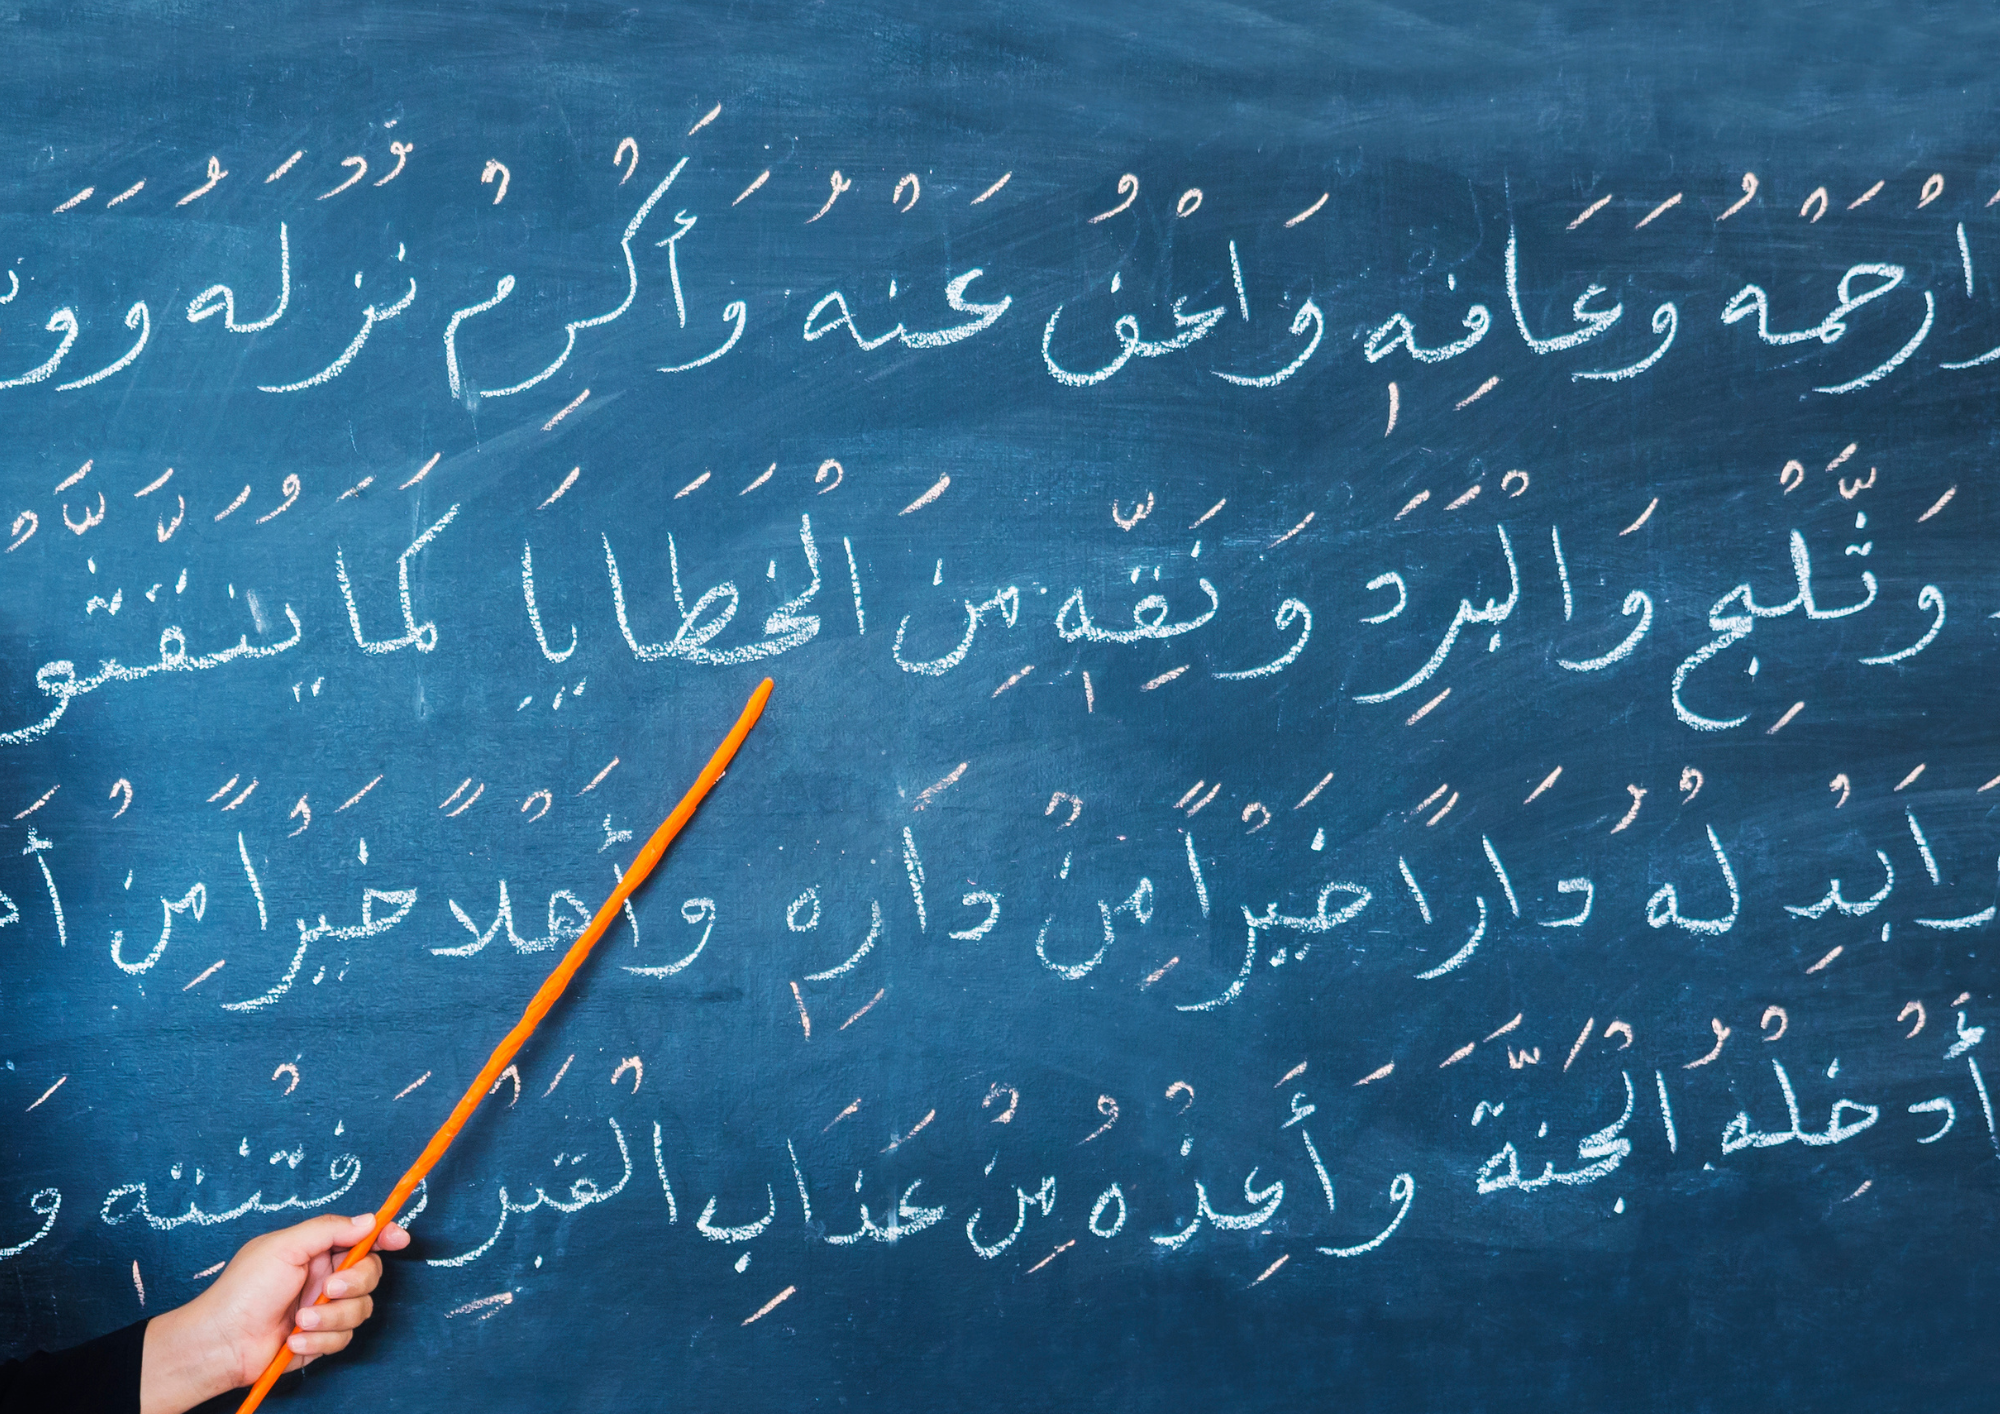 وَارْحَمْهُ وَعَافِهِ وَاعْفُ عَنْهُ وَأَكْرِمْ نُزُلَهُ وَوَ
وَثَّلْجِ وَالْبَرَدِ وَنَقِّهِ مِنَ الْخَطَايَا كَمَا يُنَقَّ
وَابْدِ لْهُ دَارًا خَيْرًا مِنْ دَارِهِ وَأَهْلًا خَيْرًا مِنْ أَ
أَدْخِلْهُ الْجَنَّةَ وَأَعِذْهُ مِنْ عَذَابِ الْقَبْرِ وَفِتْنَتِهِ وَ